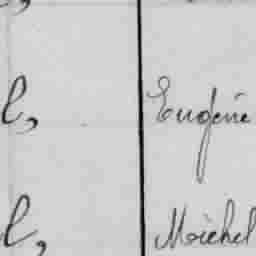 l, Eugénie
l, Moichel